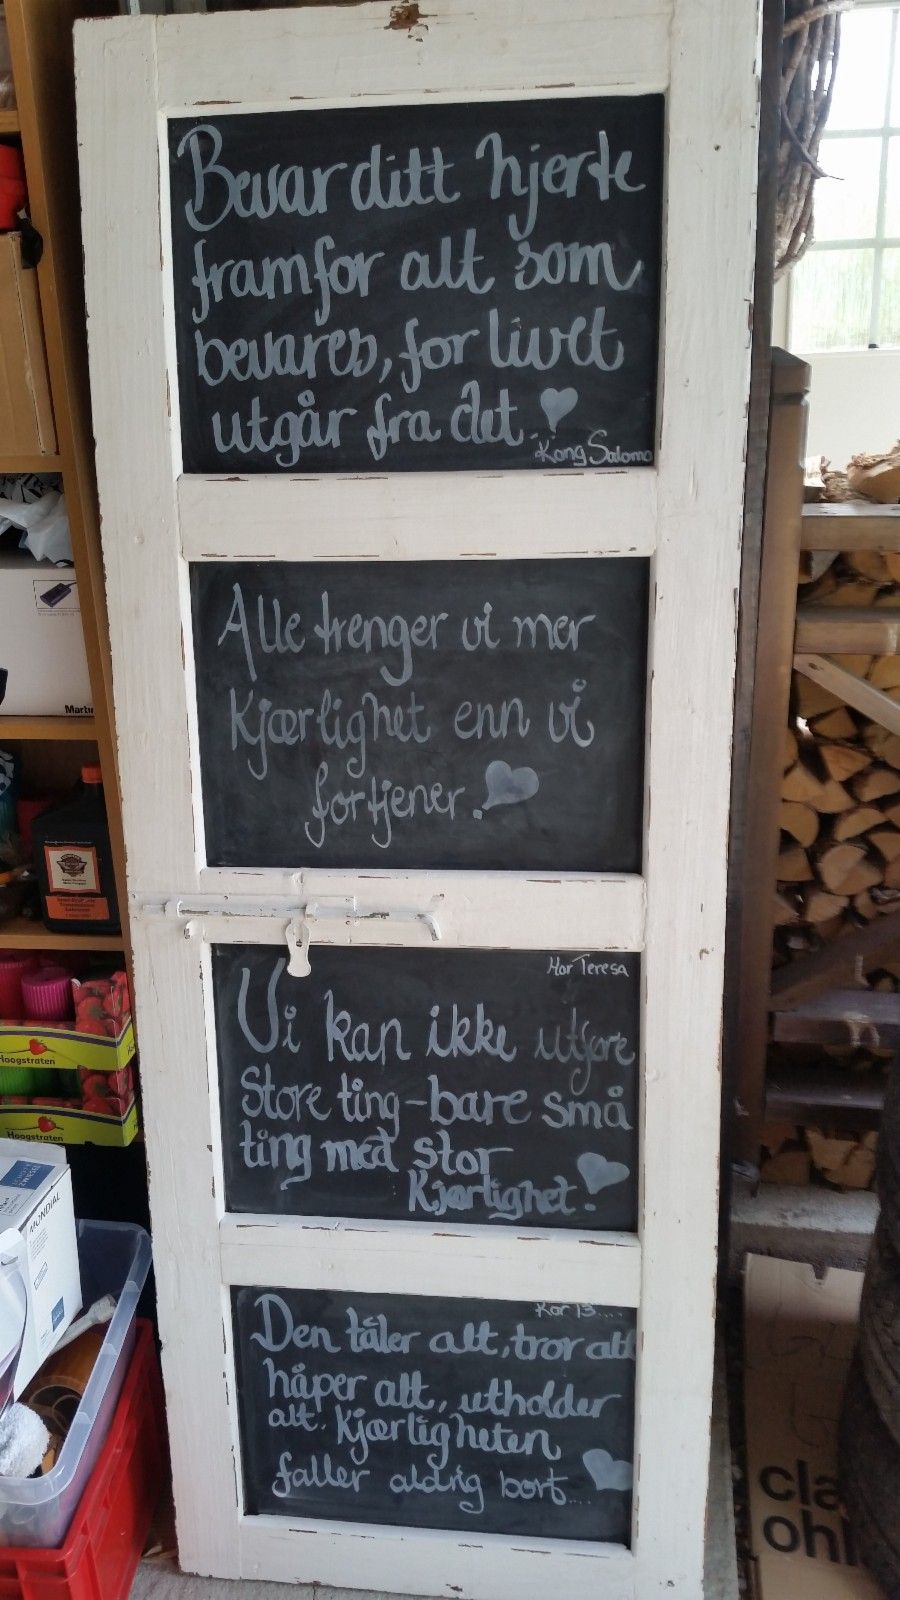 Bevar ditt hjerte
framfor alt som
bevares, for livet
utgår fra det.
Kong Salomo
Alle trenger vi mer
Kjærlighet enn vi
fortjener.
Mor Teresa
Vi kan ikke utføre
Store ting - bare små
ting med stor
Kjærlighet.
Kor 13....
Den tåler alt, tror alt
håper alt, utholder
alt. Kjærligheten
faller aldrig bort....
Hoogstraten
Hoogstraten
MONDIAL
cla
ohl